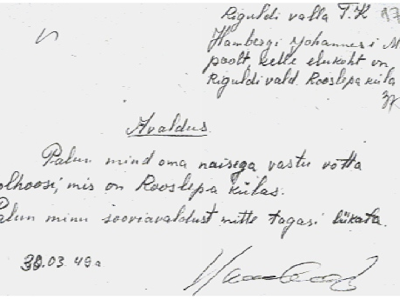 Riguldi valla T.K
Hambergi Johannes'i
poolt kelle elukoht on
Riguldi vald Rooslepa küla
Avaldus.
Palun mind oma naisega vastu võtta
olhoosi, mis on Rooslepa külas.
Palun minu sooviavaldust mitte tagasi lükata.
30.03.49a